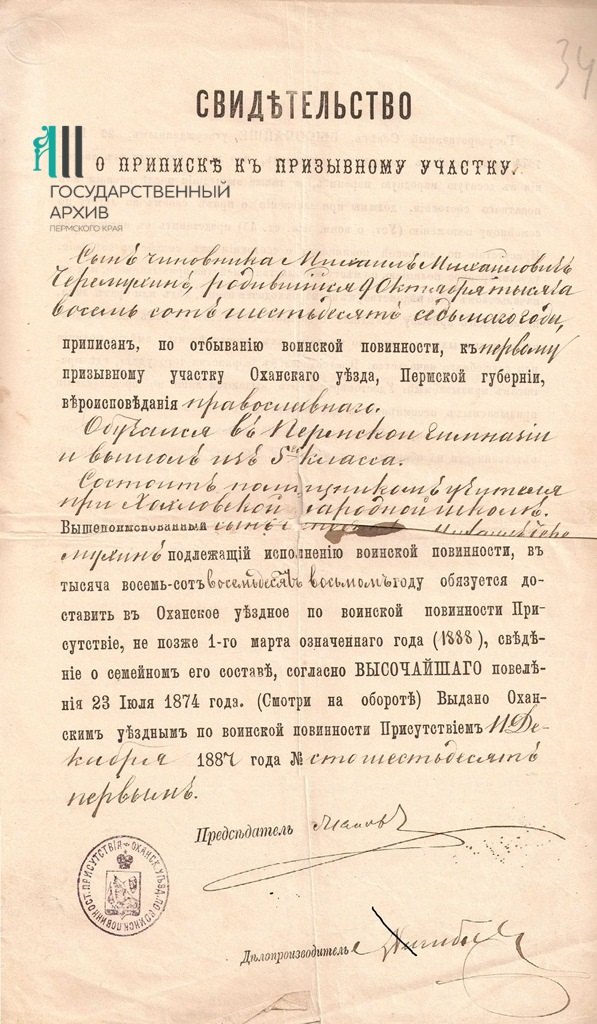 34
СВИДѢТЕЛЬСТВО
О ПРИПИСКѢ КЪ ПРИЗЫВНОМУ УЧАСТКУ.
ГОСУДАРСТВЕННЫЙ
АРХИВ
ПЕРМСКОГО КРАЯ
Сынъ чиновника Михаилъ Михайловичъ
Черемухинъ, родившійся 9 Октября тысяча
восемь сотъ шестьдесятъ седьмаго года,
приписан, по отбыванию воинской повинности, къ первому
призывному участку Оханскаго уѣзда, Пермской губерніи,
вѣроисповѣданія православнаго.
Обучался въ Пермской гимназіи
и вышелъ изъ 5го класса.
Состоитъ помощникомъ учителя
при Хохловской народной школѣ.
Вышепоименованный сынъ Михаилъ Чере
мухинъ подлежащій исполненію воинской повинности, въ
тысяча восемь-сот восемьдесятъ восьмомъ году обязуется до-
ставить въ Оханское уѣздное по воинской повинности При-
сутствіе, не позже 1-го марта означеннаго года (1888), свѣдѣ-
ніе о семейном его составѣ, согласно ВЫСОЧАЙШАГО повелѣ-
нія 23 Іюля 1874 года. (Смотри на оборотѣ) Выдано Охан-
скимъ уѣзднымъ по воинской повинности Присутствіемъ 11 Де-
кабря 1887 года № сто шестьдесятъ
первымъ.
Предсѣдатель
ОХАНСК. УѢЗД. ПО ВОИНСК. ПОВИННОСТ. ПРИСУТСТВІЯ
Дѣлопроизводитель